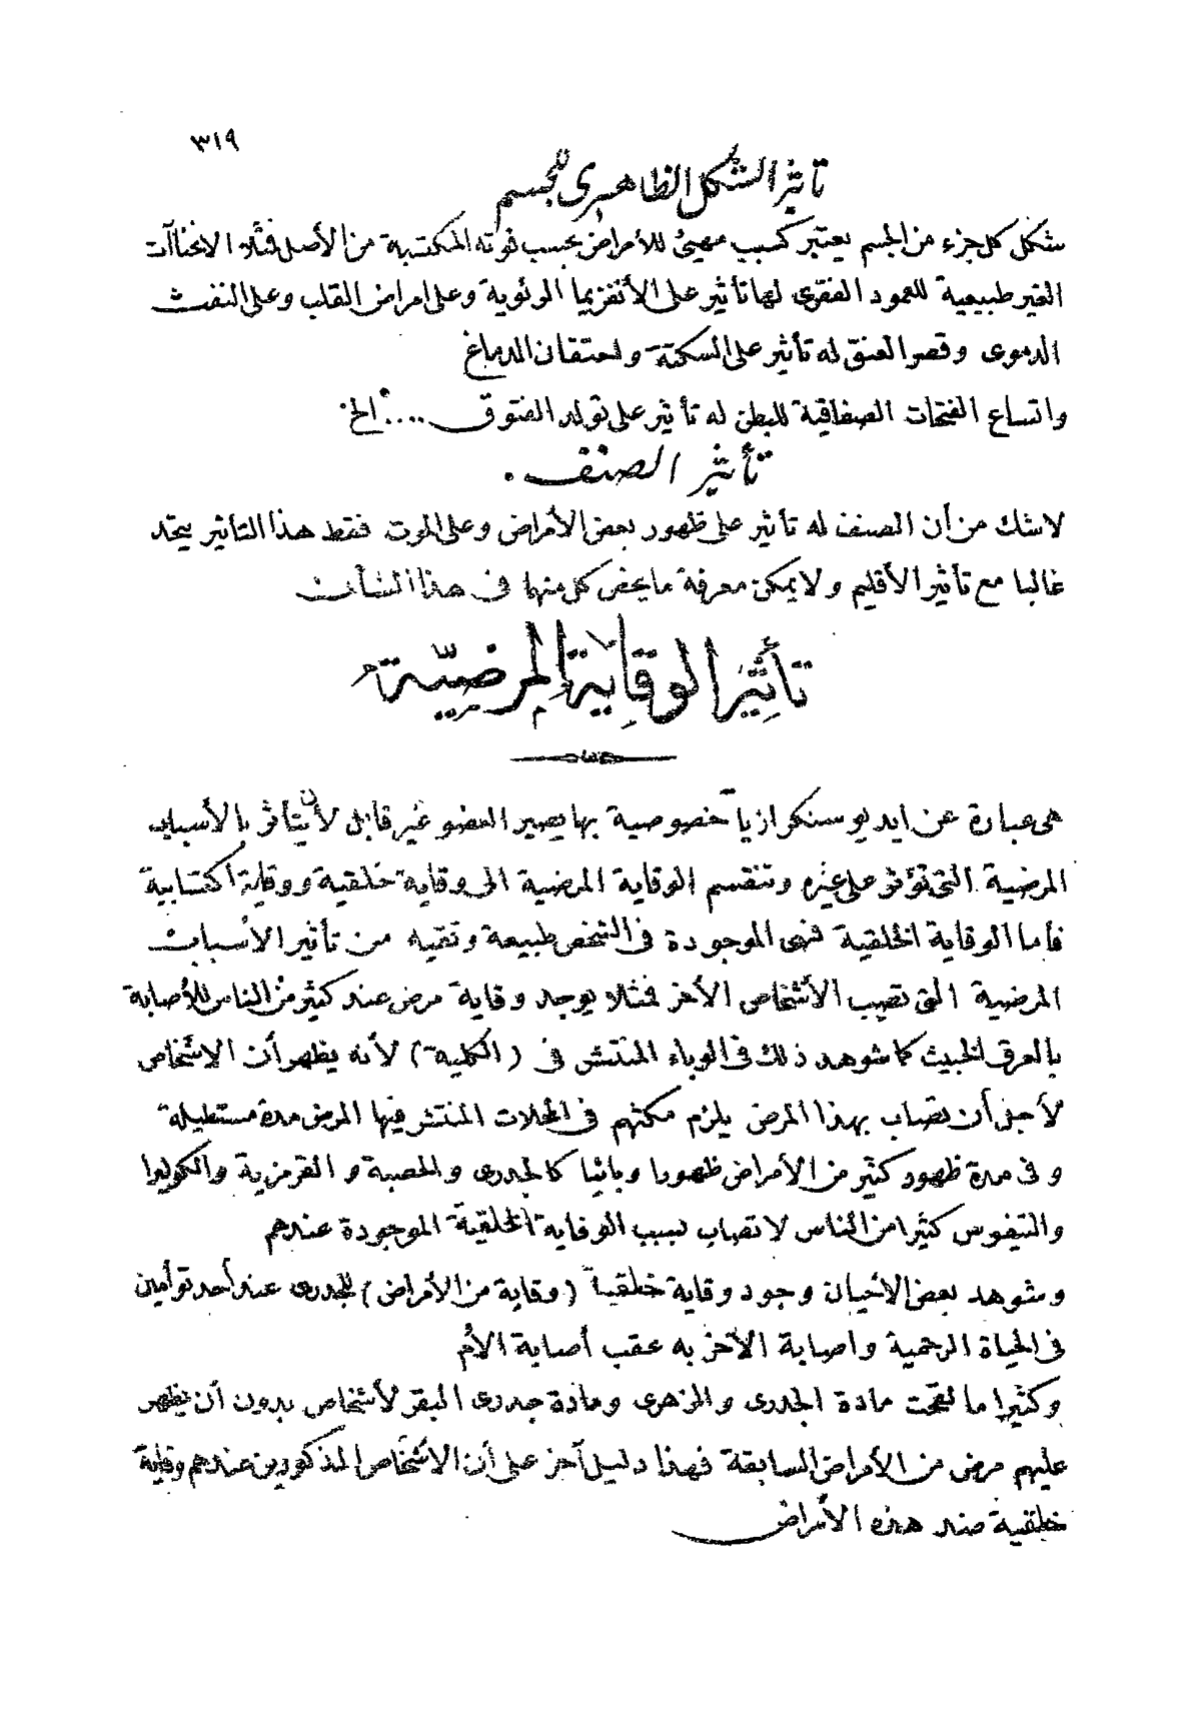 ٣١٩
تأثير الشكل الظاهرى للجسم
شكل كل جزء من الجسم يعتبر كسبب مهيئ للأمراض بحسب قوته المكتسبة من الأصل فمثلا الانحناآت
الغير طبيعية للعمود الفقرى لها تأثير على الأنفزيما الرئوية وعلى امراض القلب وعلى النفث
الدموى وقصر العنق له تأثير على السكتة واحتقان الدماغ
واتساع الفتحات الصفاقية للبطن له تأثير على تولد الفتوق .... الخ
تأثير الصنف .
لاشك من أن الصنف له تأثير على ظهور بعض الأمراض وعلى الموت فقط هذا التأثير يتحد
غالبا مع تأثير الأقليم ولا يمكن معرفة ما يخص كل منها فى هذا الشأن
تأثير الوقاية المرضية
هى عبارة عن ايديوسنكرازيا خصوصية بها يصير العضو غير قابل لأن يتأثر بالأسباب
المرضية التى تؤثر على غيره وتنقسم الوقاية المرضية الى وقاية خلقية ووقاية اكتسابية
فأما الوقاية الخلقية فهى الموجودة فى الشخص طبيعة وتقيه من تأثير الأسباب
المرضية التى تصيب الأشخاص الأخر فمثلا يوجد وقاية مرض عند كثير من الناس للأصابة
بالعرق الخبيث كما شوهد ذلك فى الوباء المنتشر فى (الكلية) لأنه يظهر أن الاشخاص
لأجل أن تصاب بهذا المرض يلزم مكثهم فى المحلات المنتشر فيها المرض مدة مستطيلة
وفى مدة ظهور كثير من الأمراض ظهورا وبائيا كالجدرى والحصبة والقرمزية والكوليرا
والتيفوس كثيرا من الناس لا تصاب بسبب الوقاية الخلقية الموجودة عندهم
وشوهد بعض الأحيان وجود وقاية خلقية (وقاية من الأمراض) للجدرى عند أحد توأمين
فى الحياة الرحمية واصابة الآخر به عقب أصابة الأم
وكثيرا ما لقحت مادة الجدرى والزهرى ومادة جدرى البقر لأشخاص بدون أن يظهر
عليهم مرض من الأمراض السابقة فهذا دليل آخر على أن الأشخاص المذكورين عندهم وقاية
خلقية ضد هذه الأمراض